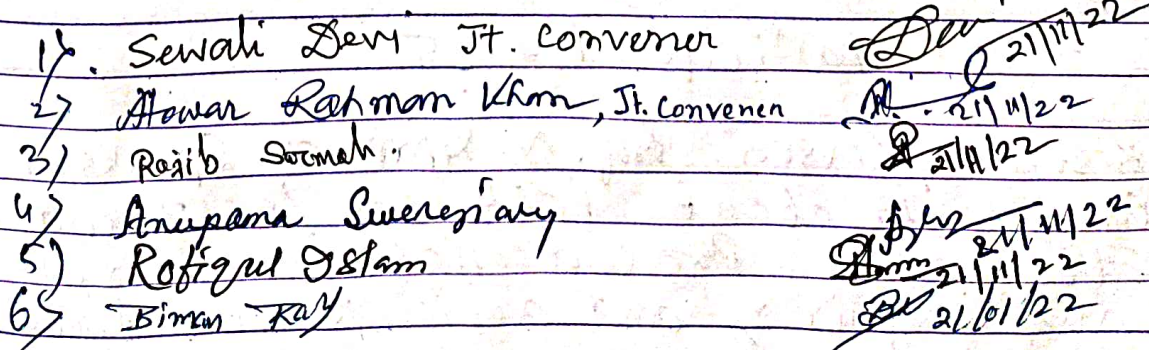 1). Sewali Devi Jt. Convener 21/11/22
2) Atowar Rahman Khan, Jt. Convener 21/11/22
3) Rajib Sarmah. 21/11/22
4) Anupama Swergiary 21/11/22
5) Rofiqul Islam 21/11/22
6) Biman Ray 21/01/22